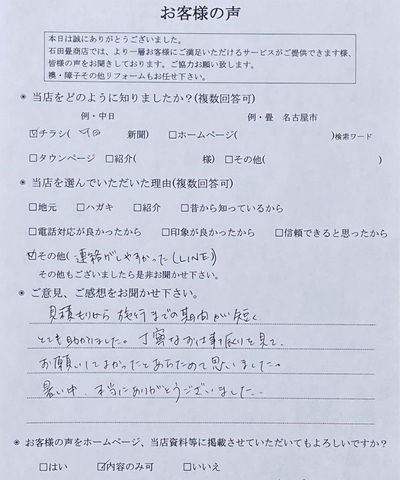 お客様の声
本日は誠にありがとうございました。
石田畳商店では、より一層お客様にご満足いただけるサービスがご提供できます様、
皆様の声をお聞きしております。ご協力お願い致します。
襖・障子その他リフォームもお任せ下さい。
◉ 当店をどのように知りましたか？(複数回答可)
例・中日 例・畳 名古屋市
☑チラシ( 中日 新聞) □ホームページ( )検索ワード
□タウンページ □紹介( 様) □その他( )
◉ 当店を選んでいただいた理由(複数回答可)
□地元 □ハガキ □紹介 □昔から知っているから
□電話対応が良かったから □印象が良かったから □信頼できると思ったから
☑その他( 連絡がしやすかった(LINE) )
その他もございましたら是非お聞かせ下さい。
◉ ご意見、ご感想をお聞かせ下さい。
見積もりから施行までの期間が短く
とても助かりました。丁寧なお仕事振りを見て、
お願いしてよかったとあらためて思いました。
暑い中、本当にありがとうございました。
◉ お客様の声をホームページ、当店資料等に掲載させていただいてもよろしいですか？
□はい ☑内容のみ可 □いいえ